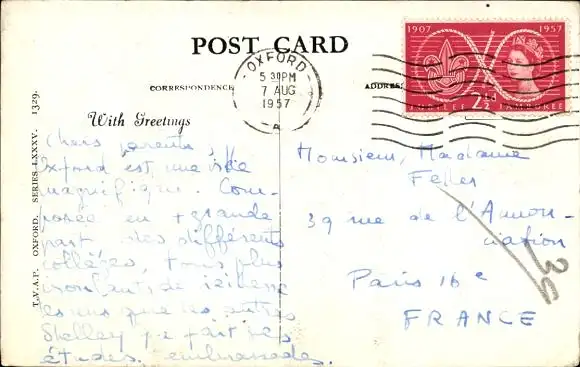 POST CARD
CORRESPONDENCE
ADDRESS
With Greetings
T.V.A.P. OXFORD. SERIES LXXXV. 1329.
OXFORD
5 30PM
7 AUG
1957
A
1907 1957
JUBILEE 2½d JAMBOREE
Chers parents,
Oxford est une ville
magnifique. Com-
posée en + grande
part des différents
collèges, tous plus
les uns que les autres
Shelley fait ses
études. embrassades.
Monsieur, Madame
Feller
39 rue de l'Annon-
ciation
Paris 16e
FRANCE